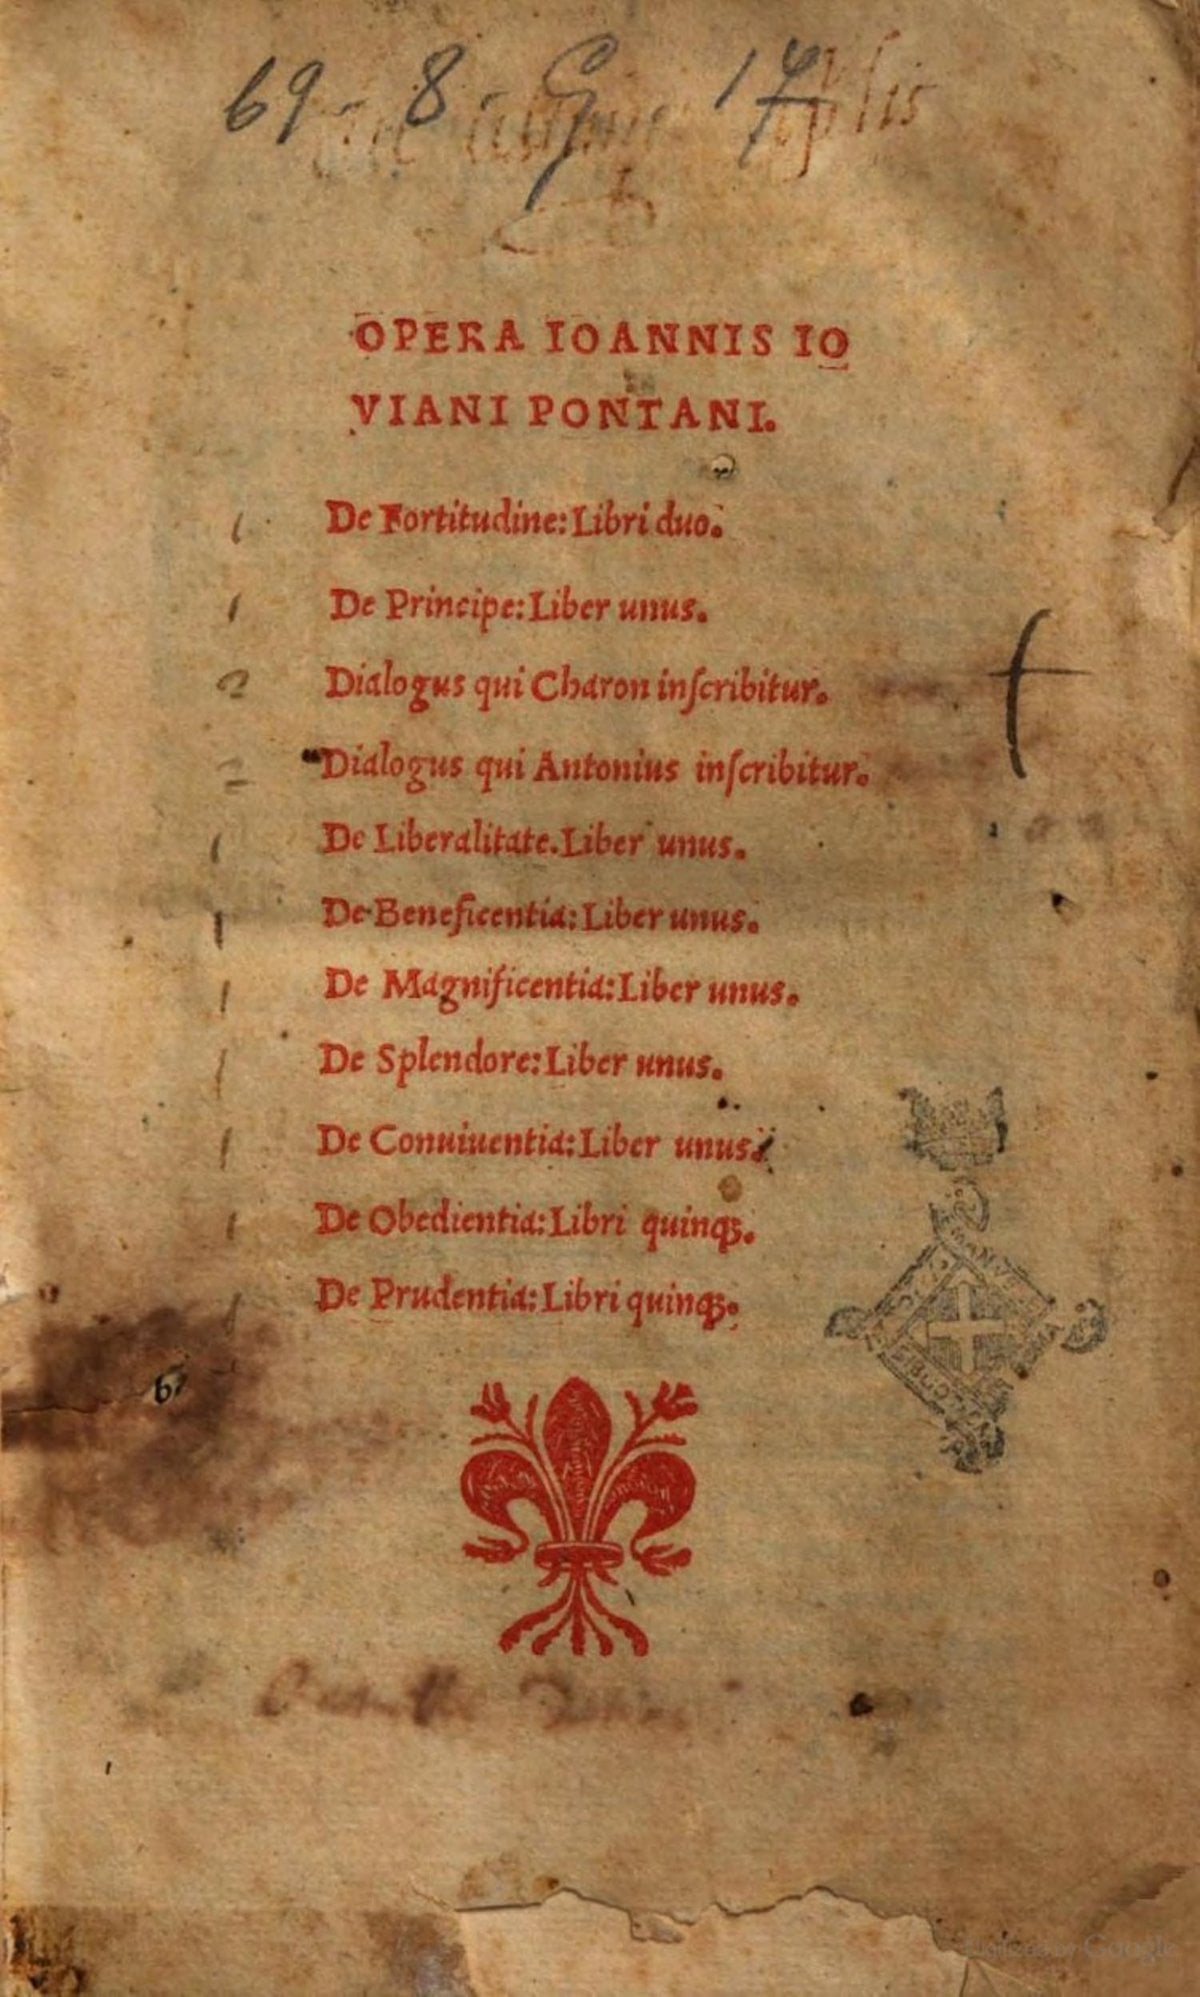 69 - 8 - G 17
OPERA IOANNIS IO
VIANI PONTANI.
De Fortitudine: Libri duo.
De Principe: Liber unus.
Dialogus qui Charon inſcribitur.
Dialogus qui Antonius inſcribitur.
De Liberalitate. Liber unus.
De Beneficentia: Liber unus.
De Magnificentia: Liber unus.
De Splendore: Liber unus.
De Conuiuentia: Liber unus.
De Obedientia: Libri quinqꝫ.
De Prudentia: Libri quinqꝫ.
Digitized by Google